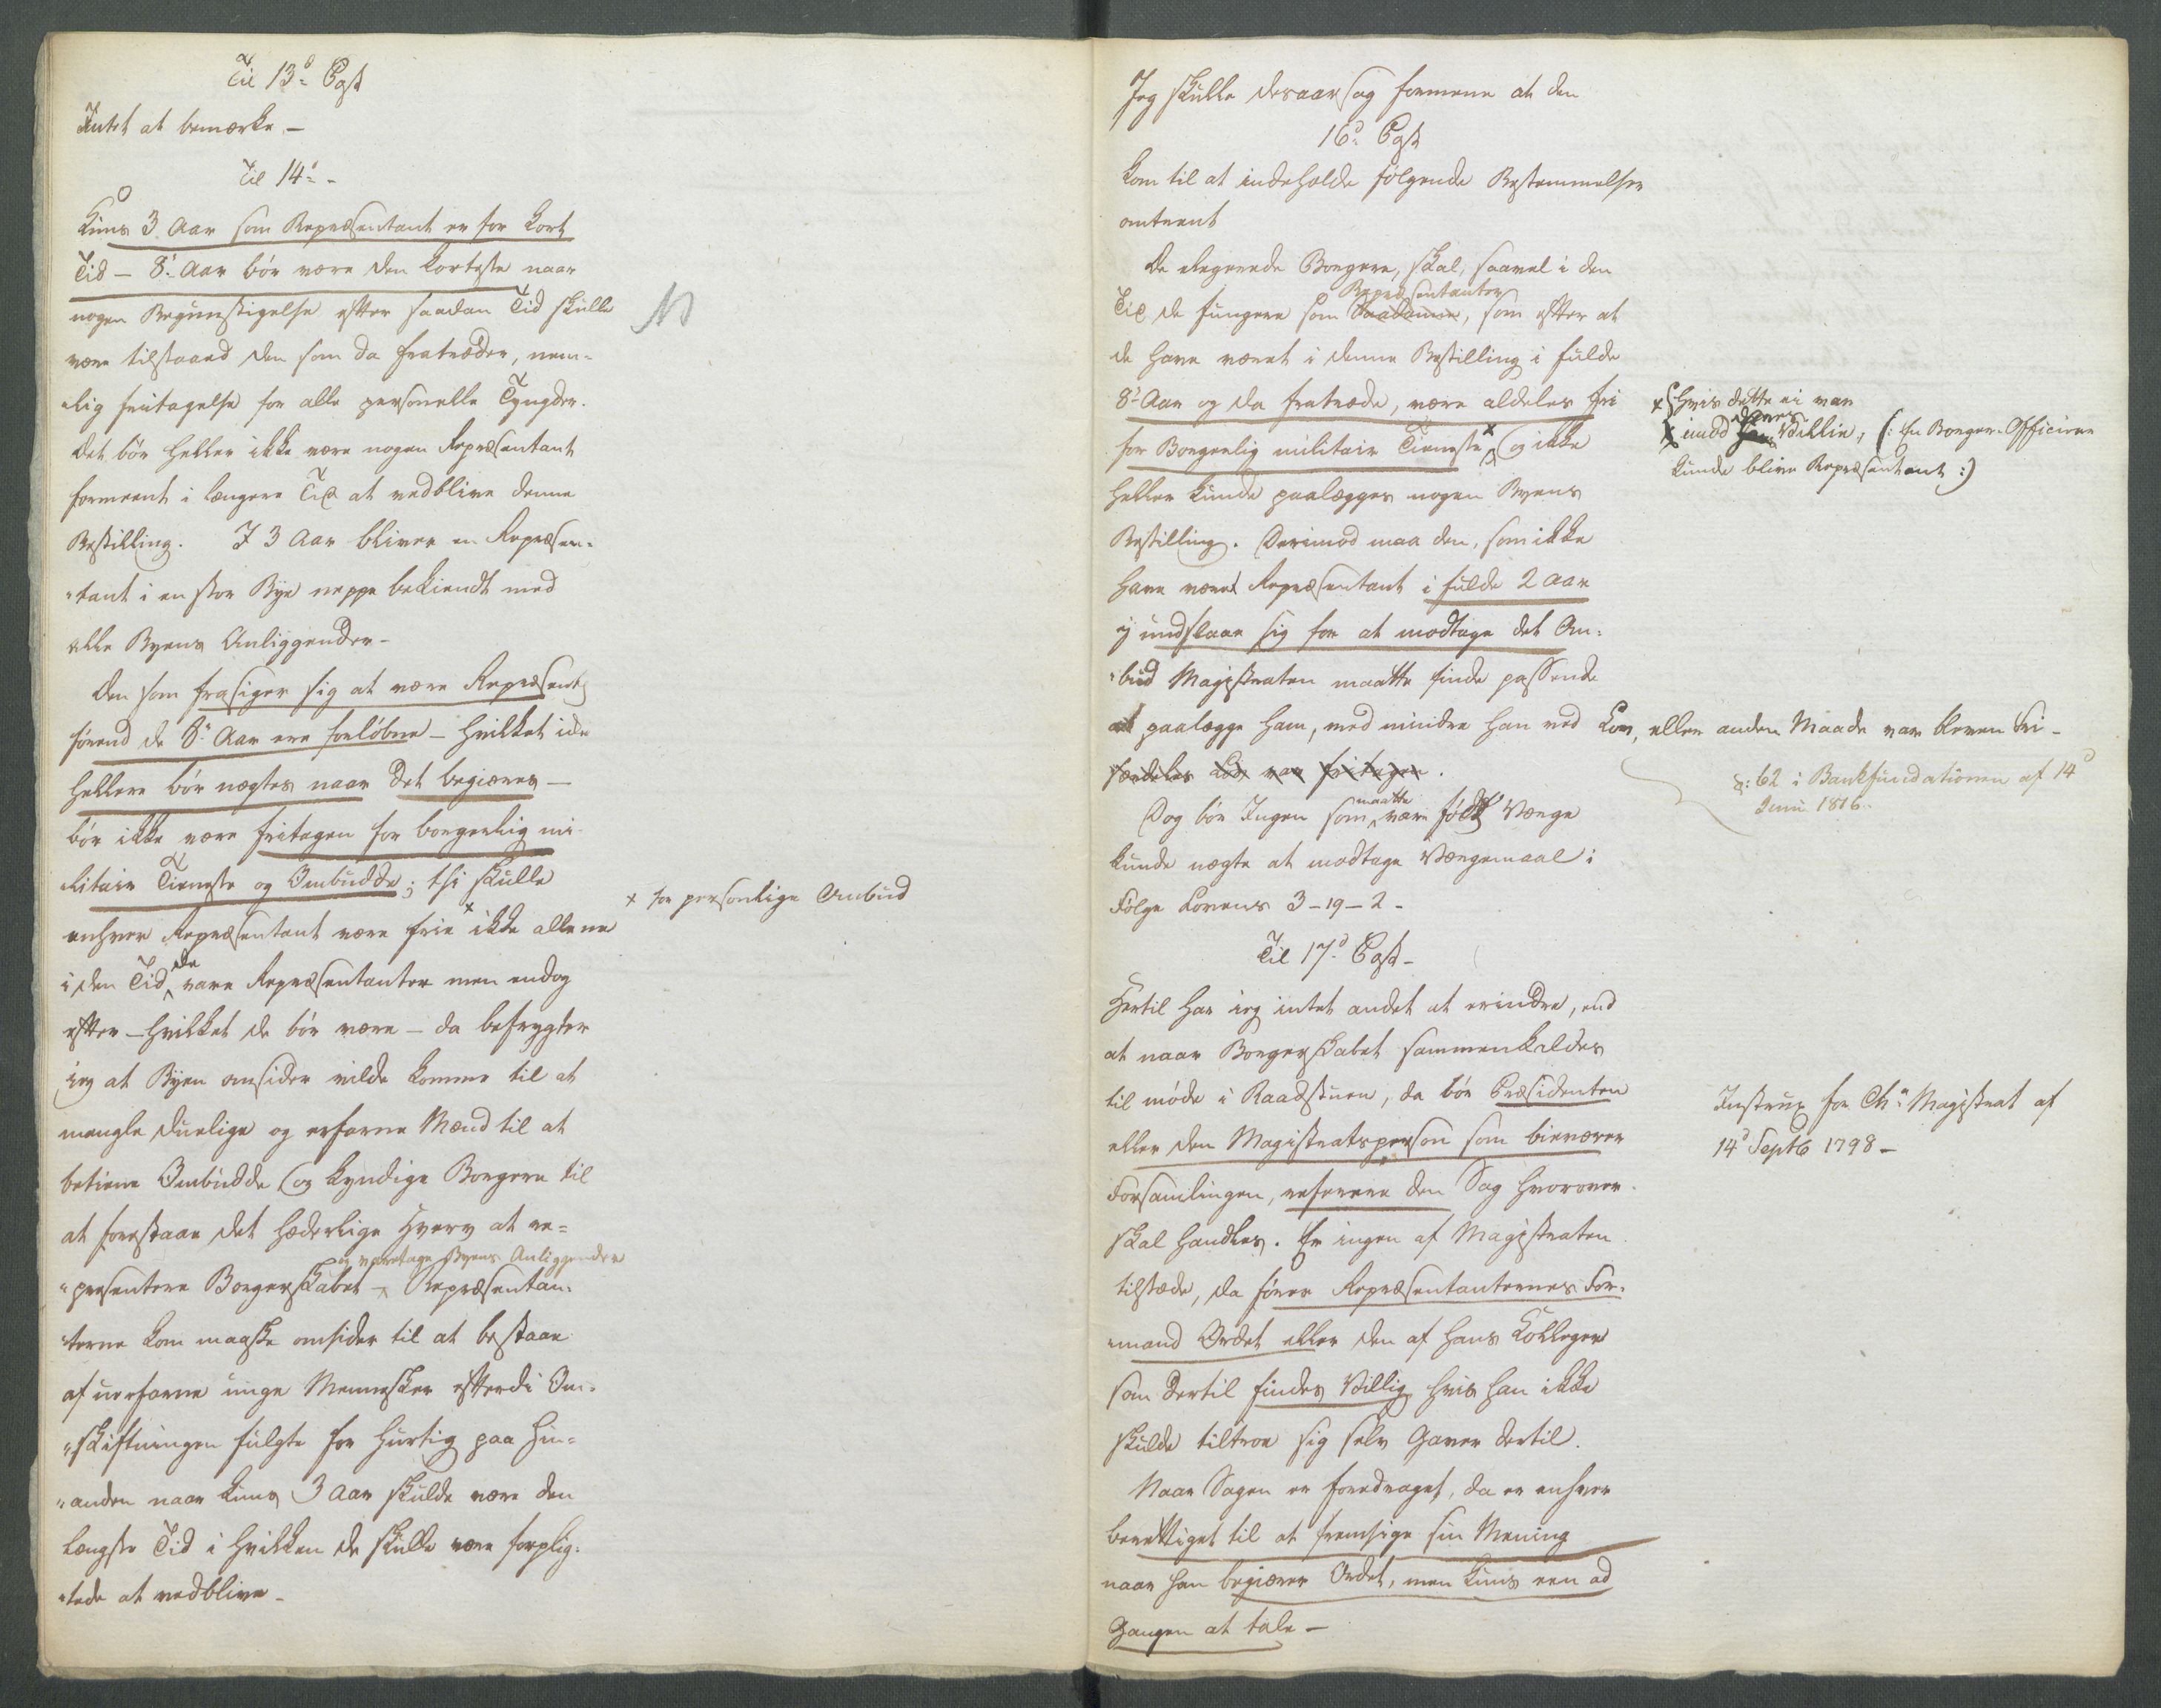 Til 13de Post
Intet at bemærke. –
Til 14de –
Kuns 3 Aar som Repræsentant er for kort
Tid – 8te Aar bör være den korteste naar
nogen Begunstigelse efter saadan Tid skulle
være tilstaaed den som da fratræder, nem-
lig fritagelse for alle personelle Tyngder.
Det bör heller ikke være nogen Repræsentant
formeent i længere Tid at vedblive denne
Bestilling. I 3 Aar bliver en Repræsen-
tant i en stor Bye neppe bekiendt med
alle Byens Anliggender –
Den som frasiger sig at være Repræsent:
förend de 8te Aar ere forlöbne – hvilket ide
hellere bör nægtes naar det begiæres –
bör ikke være fritagen for borgerlig mi-
litair Tieneste og Ombudde; thi skulle
enhver Repræsentant være frie x ikke allene
x for personlige Ombud
i den Tid de vare Repræsentanter men endog
efter – hvilket de bör være – da befrygter
jeg at Byen omsider vilde komme til at
mangle duelige og erfarne Mænd til at
betiene Ombudde og kyndige Borgere til
at forestaae det hæderlige Hverv at re-
og varetage Byens Anliggender
præsentere Borgerskabet – Repræsentan-
terne kom maaske omsider til at bestaae
af uerfarne unge Mennesker efterdi Om-
skiftningen fulgte for hurtig paa hin-
anden naar kuns 3 Aar skulde være den
længste Tid i hvilken de skulle være forplig-
tede at vedblive –
Jeg skulle desaarsag formene at den
16de Post
kom til at indeholde fölgende Bestemmelser
omtrent
De elegerede Borgere, skal, saavel i den
Repræsentanter
Tid de fungere som Saadanne, som efter at
de have været i denne Bestilling i fulde
8te Aar og da fratræde, være aldeles fri
for Borgerlig militair Tieneste x og ikke
x hvis dette ei var
imod deres Villie, (: En Borger-Officier
kunde blive Repræsentant :)
heller kunde paalægges nogen Byens
Bestilling. Derimod maa den, som ikke
have været Repræsentant i fulde 2 Aar
ej undslaae sig for at modtage det Om-
bud Magistraten maatte finde passende
at paalægge ham, med mindre han ved Lov, eller anden Maade var bleven fri –
særdeles Lov var fritagen.
§: 62 i Bankfundationen af 14de
Juni 1816.
Dog bör Ingen som maatte være födt Værge
kunde nægte at modtage Værgemaal i
Fölge Lovens 3–19–2 –
Til 17de Post –
Hertil har jeg intet andet at erindre, end
at naar Borgerskabet sammenkaldes
til möde i Raadstuen, da bör Præsidenten
eller den Magistratsperson som bieværer
Forsamlingen, referere den Sag hvorover
Instrux for Chra Magistrat af
14de Septb 1798 –
skal handles. Er ingen af Magistraten
tilstæde, da förer Repræsentanternes For-
mand Ordet eller den af hans Kolleger
som dertil findes Villig hvis han ikke
skulde tiltroe sig selv Gaver dertil.
Naar Sagen er foredraget, da er enhver
berettiget til at fremsige sin Mening
naar han begiærer Ordet, men kuns een ad
Gangen at tale –